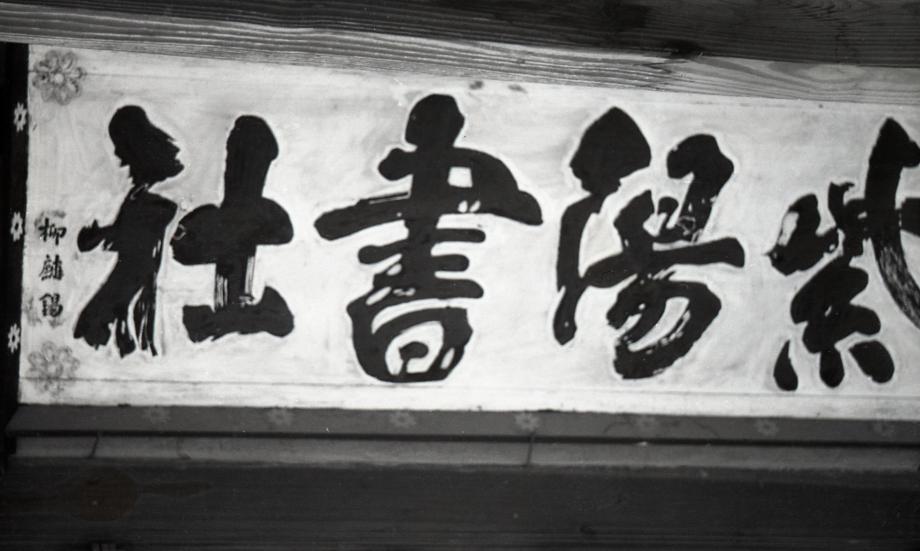 紫陽書社
柳麟錫